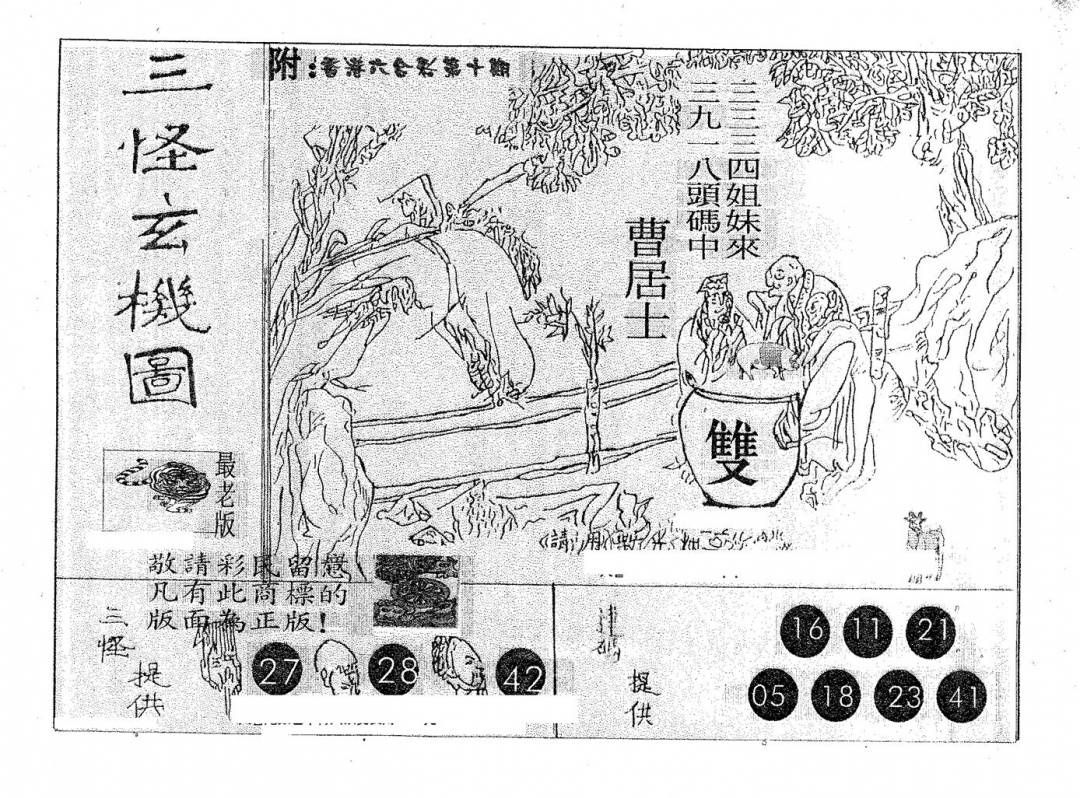 三怪玄機圖
附:香港六合彩第十期
三三三四姐妹來
三九一八頭碼中
曹居士
雙
最老版
敬請彩民留意
凡有此商標的
版面為正版!
三怪
提供
27 28 42
提供
16 11 21
05 18 23 41